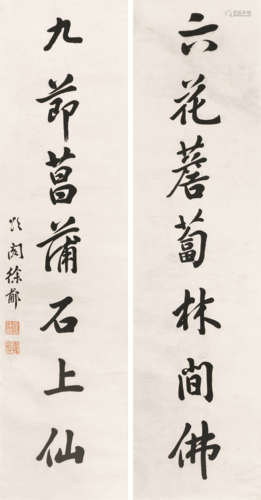 六花薝蔔林間佛
九節菖蒲石上仙
頌閣徐郙